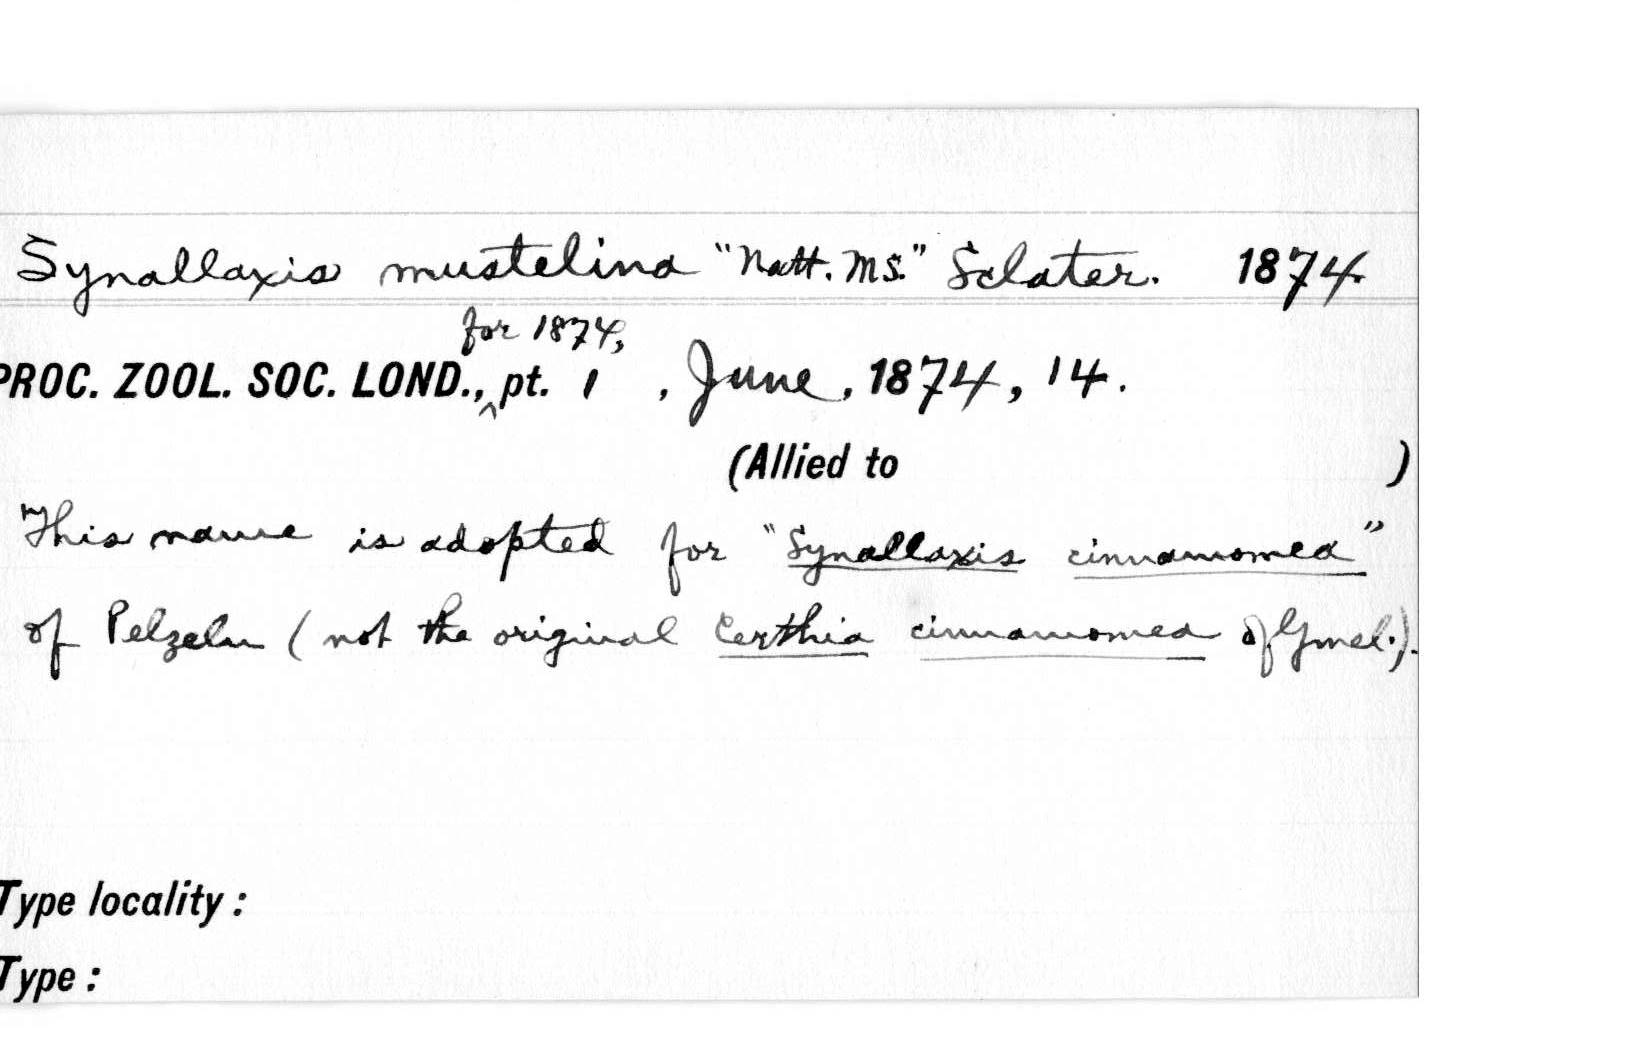 Synallaxis mustelina "Natt. MS." Sclater. 1874.
for 1874,
PROC. ZOOL. SOC. LOND., ^ pt. 1 , June, 1874, 14.
(Allied to )
This name is adopted for "Synallaxis cinnamomea"
of Pelzeln (not the original Certhia cinnamomea of Gmel.).
Type locality :
Type :